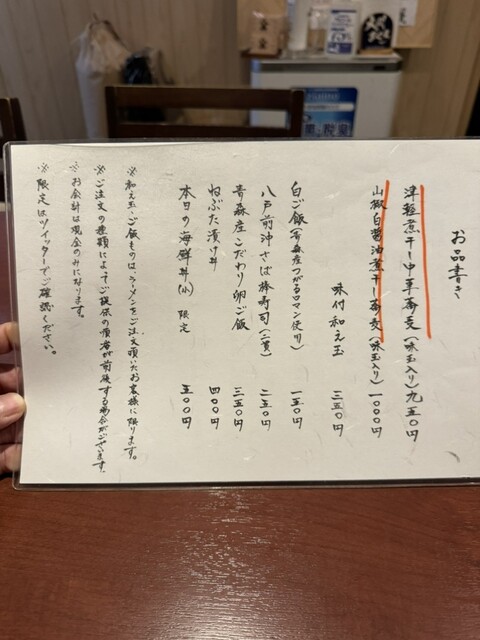 お品書き
津軽煮干し中華蕎麦(味玉入り)九五〇円
山椒白醤油煮干し蕎麦(味玉入り)一〇〇〇円
味付和え玉 三五〇円
白ご飯(青森産つがるロマン使用) 一五〇円
八戸前沖さば棒寿司(二貫) 二五〇円
青森産こだわり卵ご飯 三五〇円
ねぶた漬け丼 四〇〇円
本日の海鮮丼(小)限定 五〇〇円
※和え玉・ご飯ものは、ラーメンをご注文頂いたお客様に限ります。
※ご注文の種類によってご提供の順番が前後する場合がございます。
※お会計は現金のみになります。
※限定はツイッターでご確認ください。